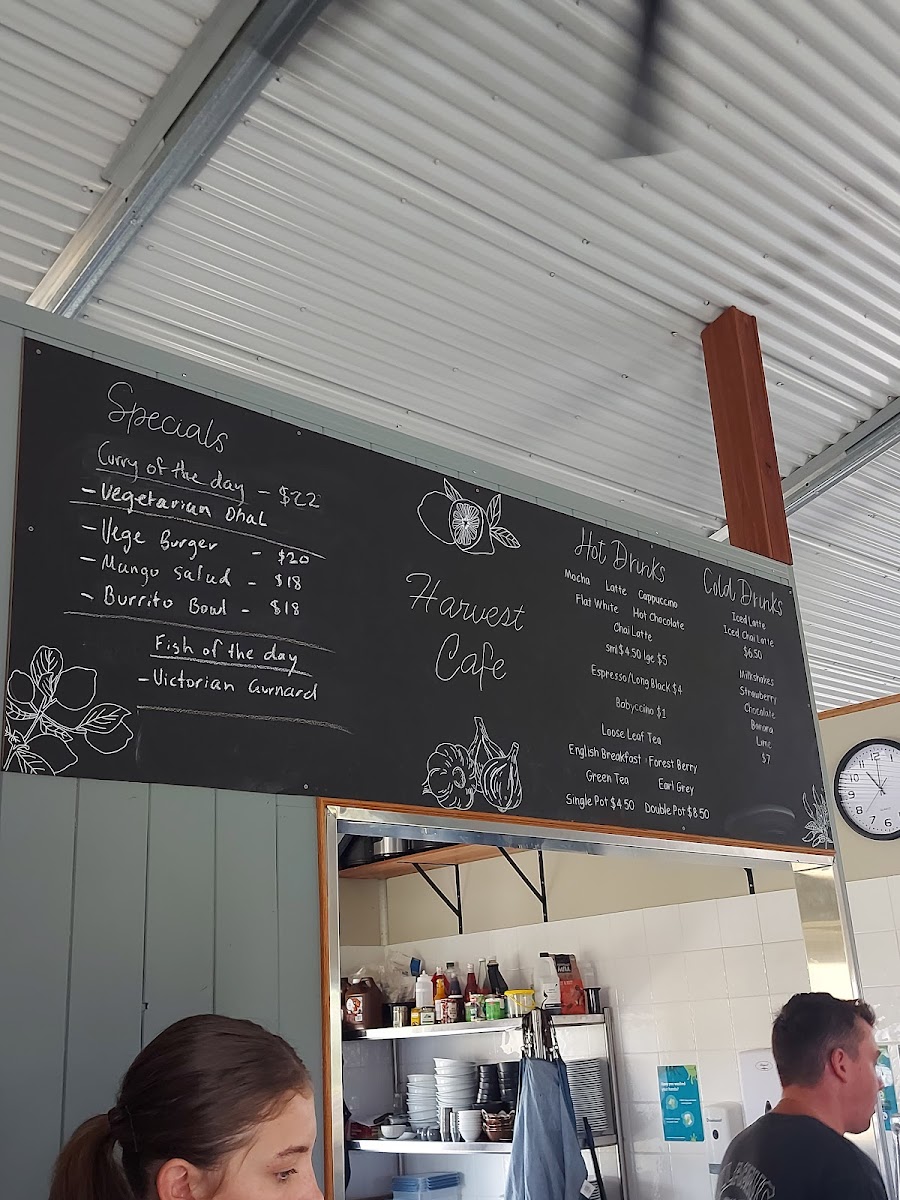 Specials
Curry of the day - $22
- Vegetarian Dhal
- Vege Burger - $20
- Mango salad - $18
- Burrito Bowl - $18
Fish of the day
- Victorian Gurnard
Harvest
Cafe
Hot Drinks
Mocha Latte Cappuccino
Flat White Hot Chocolate
Chai Latte
sml $4.50 lge $5
Espresso/Long Black $4
Babyccino $1
Loose Leaf Tea
English Breakfast Forest Berry
Green Tea Earl Grey
Single Pot $4.50 Double Pot $8.50
Cold Drinks
Iced Latte
Iced Chai Latte
$6.50
Milkshakes
Strawberry
Chocolate
Banana
Lime
$7